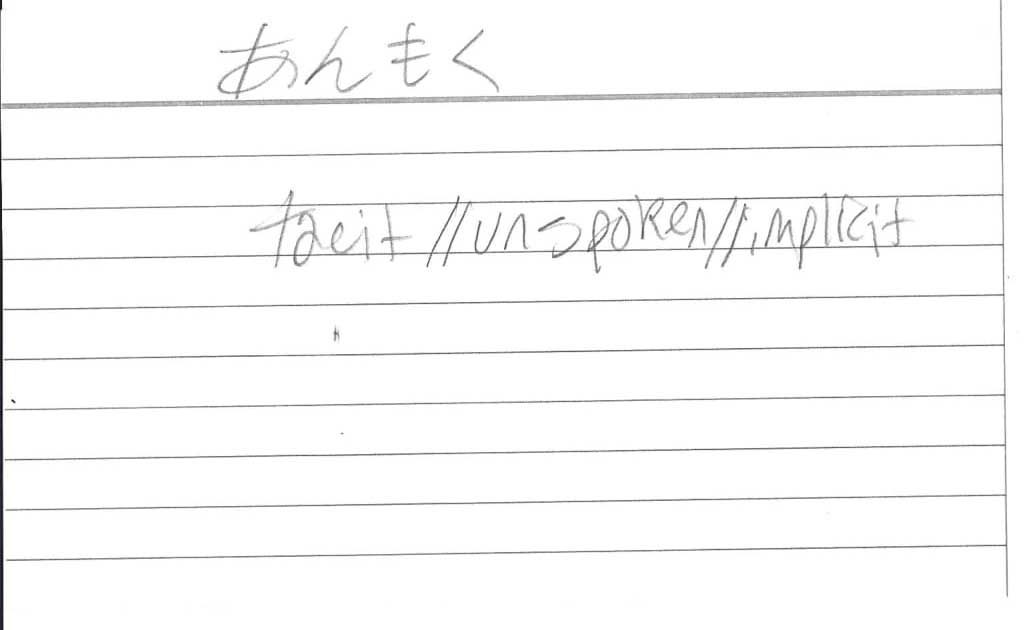 あんもく
tacit//unspoken//implicit